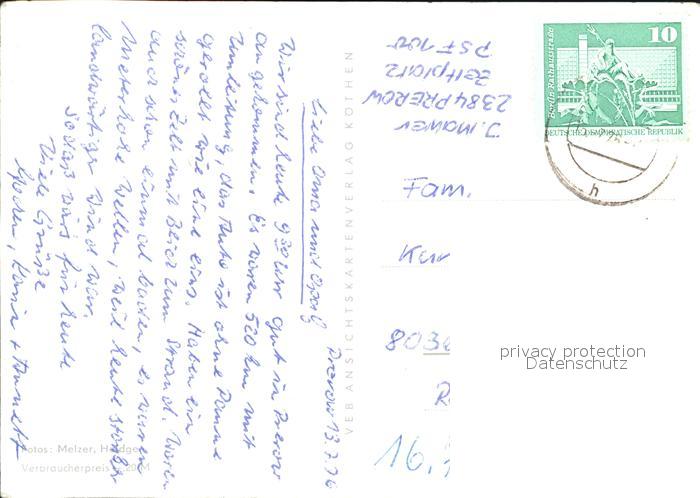 Liebe Oma und Opa!
Prerow 13.7.76
Wir sind heute 9³⁰ Uhr gut in Prerow
angekommen. Es waren 520 km mit
Umleitung, das Auto ist ohne Panne
gerollt wie eine eins. Haben ein
schönes Zelt mit Blick zum Strand. Waren
auch schon einmal baden, es waren
Meterhohe Wellen, weil heute starker
landwärtiger Wind war.
So das wärs für heute
Viele Grüße
+ Annett
VEB ANSICHTSKARTENVERLAG KÖTHEN
Fotos: Melzer,
Verbraucherpreis 0,20 M
J. Mawer
2384 PREROW
Zeltplatz
PSF 100
10
Berlin Rathausstraße
DEUTSCHE DEMOKRATISCHE REPUBLIK
h
Fam.
Kur
803
R
16.
privacy protection
Datenschutz